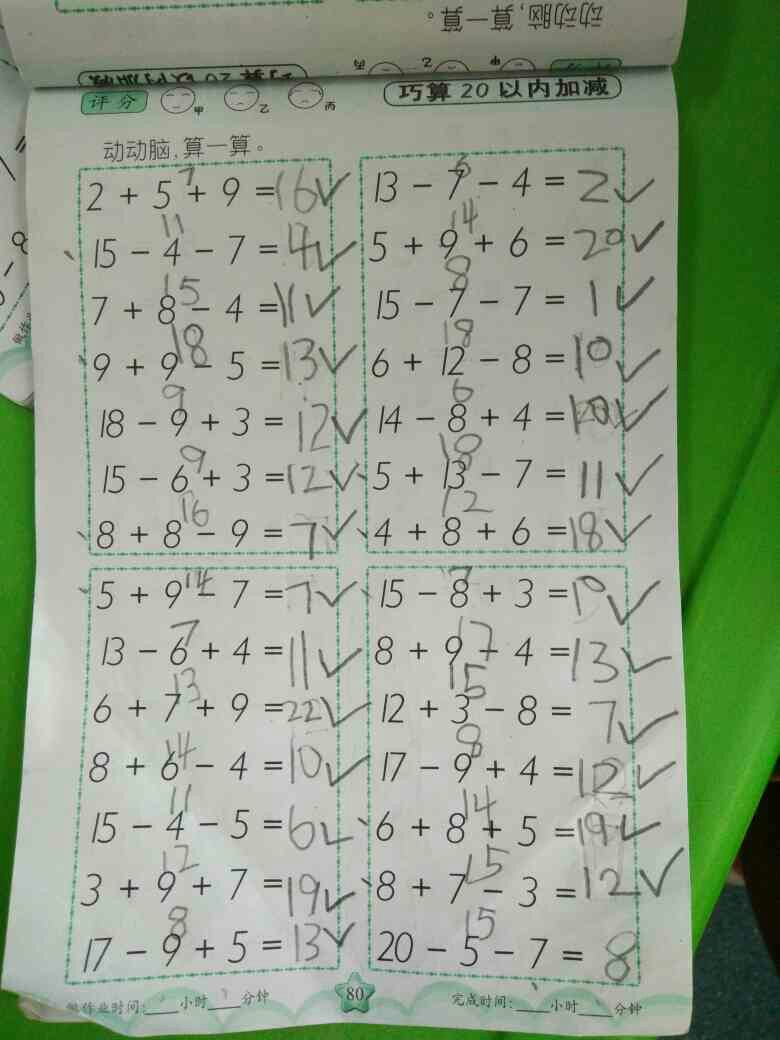 动动脑,算一算。
巧算20以内加减
评分 甲 乙 丙
巧算20以内加减
动动脑,算一算。
7
2 + 5 + 9 = 16✓
11
15 - 4 - 7 = 4✓
15
7 + 8 - 4 = 11✓
18
9 + 9 - 5 = 13✓
9
18 - 9 + 3 = 12✓
9
15 - 6 + 3 = 12✓
16
8 + 8 - 9 = 7✓
6
13 - 7 - 4 = 2✓
14
5 + 9 + 6 = 20✓
8
15 - 7 - 7 = 1✓
18
6 + 12 - 8 = 10✓
6
14 - 8 + 4 = 10✓
18
5 + 13 - 7 = 11✓
12
4 + 8 + 6 = 18✓
14
5 + 9 - 7 = 7✓
7
13 - 6 + 4 = 11✓
13
6 + 7 + 9 = 22✓
14
8 + 6 - 4 = 10✓
11
15 - 4 - 5 = 6✓
12
3 + 9 + 7 = 19✓
8
17 - 9 + 5 = 13✓
7
15 - 8 + 3 = 10✓
17
8 + 9 - 4 = 13✓
15
12 + 3 - 8 = 7✓
8
17 - 9 + 4 = 12✓
14
6 + 8 + 5 = 19✓
15
8 + 7 - 3 = 12✓
15
20 - 5 - 7 = 8
做作业时间:___小时___分钟
80
完成时间:___小时___分钟